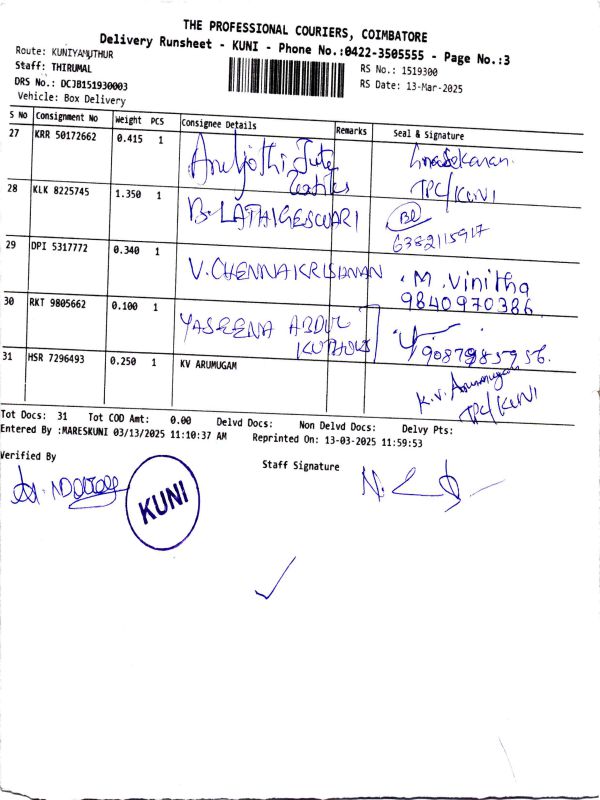 THE PROFESSIONAL COURIERS, COIMBATORE
Delivery Runsheet - KUNI - Phone No.:0422-3505555 - Page No.:3
Route: KUNIYAMUTHUR
Staff: THIRUMAL RS No.: 1519300
DRS No.: DCJB151930003 RS Date: 13-Mar-2025
Vehicle: Box Delivery
S No Consignment No Weight PCS Consignee Details Remarks Seal & Signature
27 KRR 50172662 0.415 1 Jute
TPC/KUNI
28 KLK 8225745 1.350 1 B. LATHIGESWARI
6382115917
29 DPI 5317772 0.340 1 V. CHENNAKRISHNAN M. Vinitha
9840970386
30 RKT 9805662 0.100 1 YASEENA ABDUL
31 HSR 7296493 0.250 1 KV ARUMUGAM K.V. Arumugam
TPC/KUNI
Tot Docs: 31 Tot COD Amt: 0.00 Delvd Docs: Non Delvd Docs: Delvy Pts:
Entered By :MARESKUNI 03/13/2025 11:10:37 AM Reprinted On: 13-03-2025 11:59:53
Verified By Staff Signature
KUNI